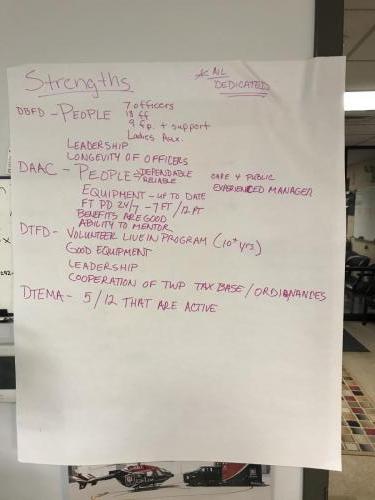 Strengths
* ALL DEDICATED
DBFD - PEOPLE 7 officers
18 ff
9 f.p. + support
Ladies Aux.
LEADERSHIP
LONGEVITY OF OFFICERS
DAAC - PEOPLE - DEPENDABLE
RELIABLE
CARE 4 PUBLIC
EXPERIENCED MANAGER
EQUIPMENT - UP TO DATE
FT PD 24/7 - 7 FT / 12 PT
BENEFITS ARE GOOD
ABILITY TO MENTOR
DTFD - VOLUNTEER LIVE IN PROGRAM (10+ yrs)
GOOD EQUIPMENT
LEADERSHIP
COOPERATION OF TWP TAX BASE / ORDINANCES
DTEMA - 5/12 THAT ARE ACTIVE